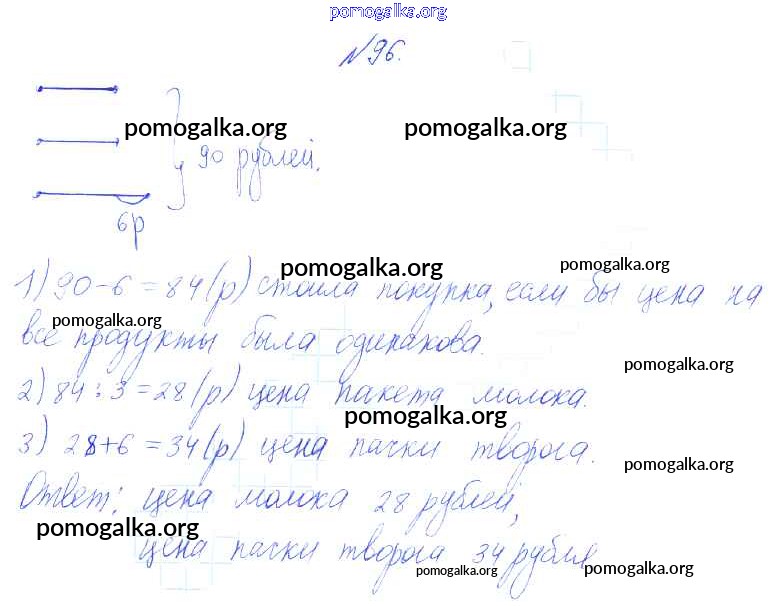 pomogalka.org
№96.
pomogalka.org pomogalka.org
90 рублей.
6р
pomogalka.org pomogalka.org
1) 90-6=84(р) стоила покупка, если бы цена на
pomogalka.org
все продукты была одинакова.
pomogalka.org
2) 84:3=28(р) цена пакета молока.
pomogalka.org
3) 28+6=34(р) цена пачки творога.
pomogalka.org
Ответ: цена молока 28 рублей,
pomogalka.org
цена пачки творога 34 рубля
pomogalka.org pomogalka.org